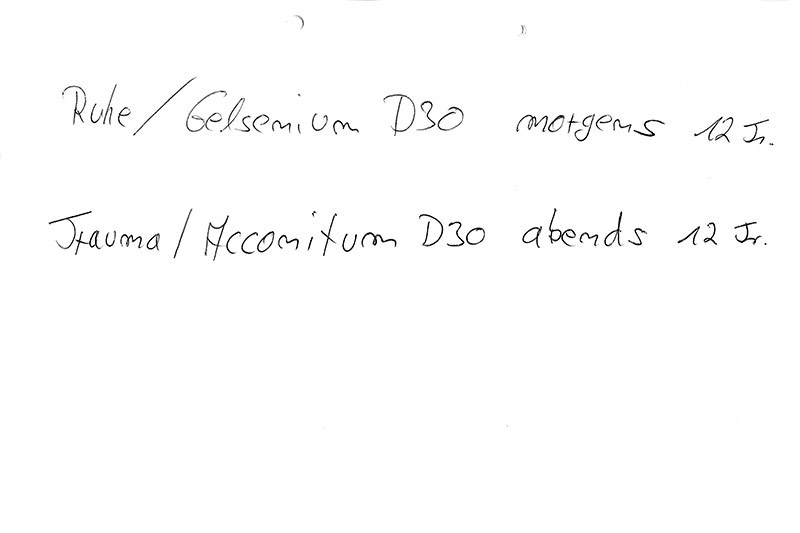 Ruhe / Gelsemium D30 morgens 12 Tr.
Trauma / Acconitum D30 abends 12 Tr.